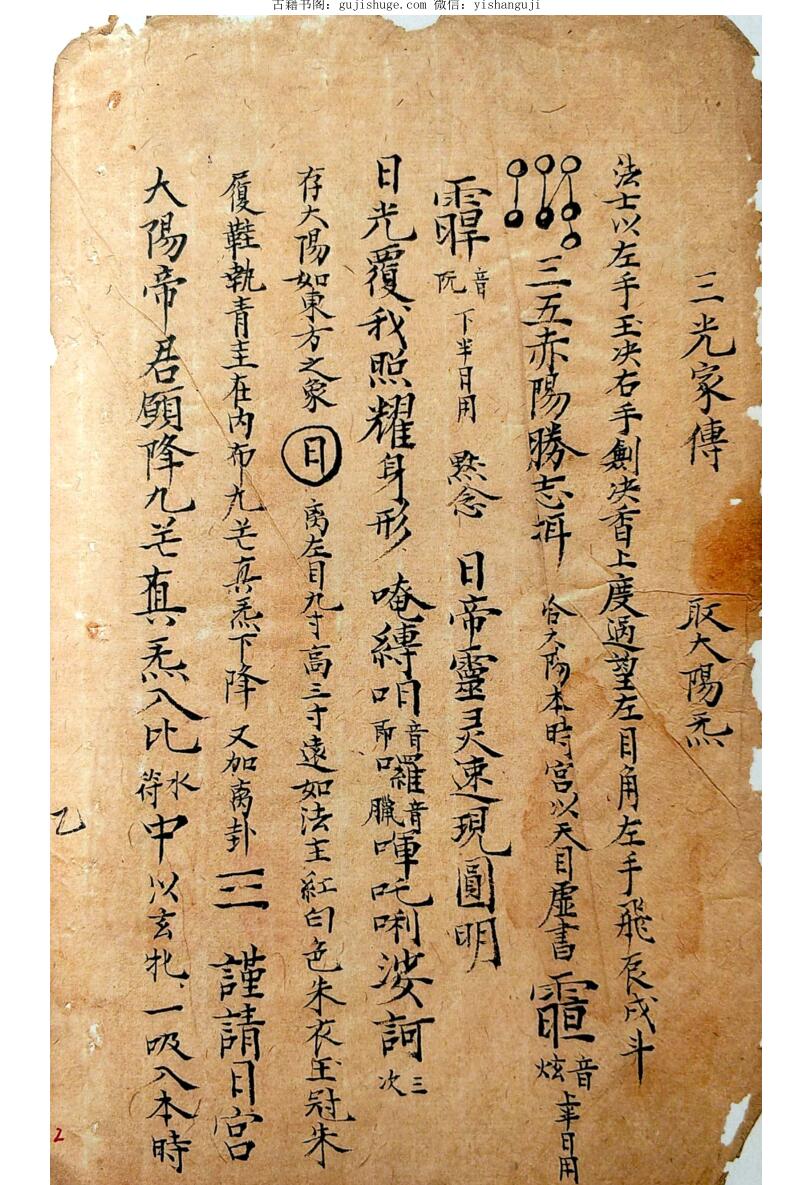 古籍书阁：gujishuge.com 微信：yishanguji
三光家傳 取大陽炁
法士以左手玉决右手劍决香上度過望左目角左手飛辰戌斗
三五赤陽勝志 合大陽本時宮以天目虛書 音炫 上半日用
音阮 下半日用 黙念 日帝靈灵速現圓明
日光覆我照耀身形 唵縛咱音即囉音臘㖶吒唎娑訶 三次
存大陽如東方之象 日 离左目九寸高三寸遠如法主紅白色朱衣玉冠朱
履鞋執青圭在內布九芒真炁下降 又加离卦 ☲ 謹請日宮
大陽帝君願降九芒真炁入比水符中以玄牝一吸入本時
乙
2